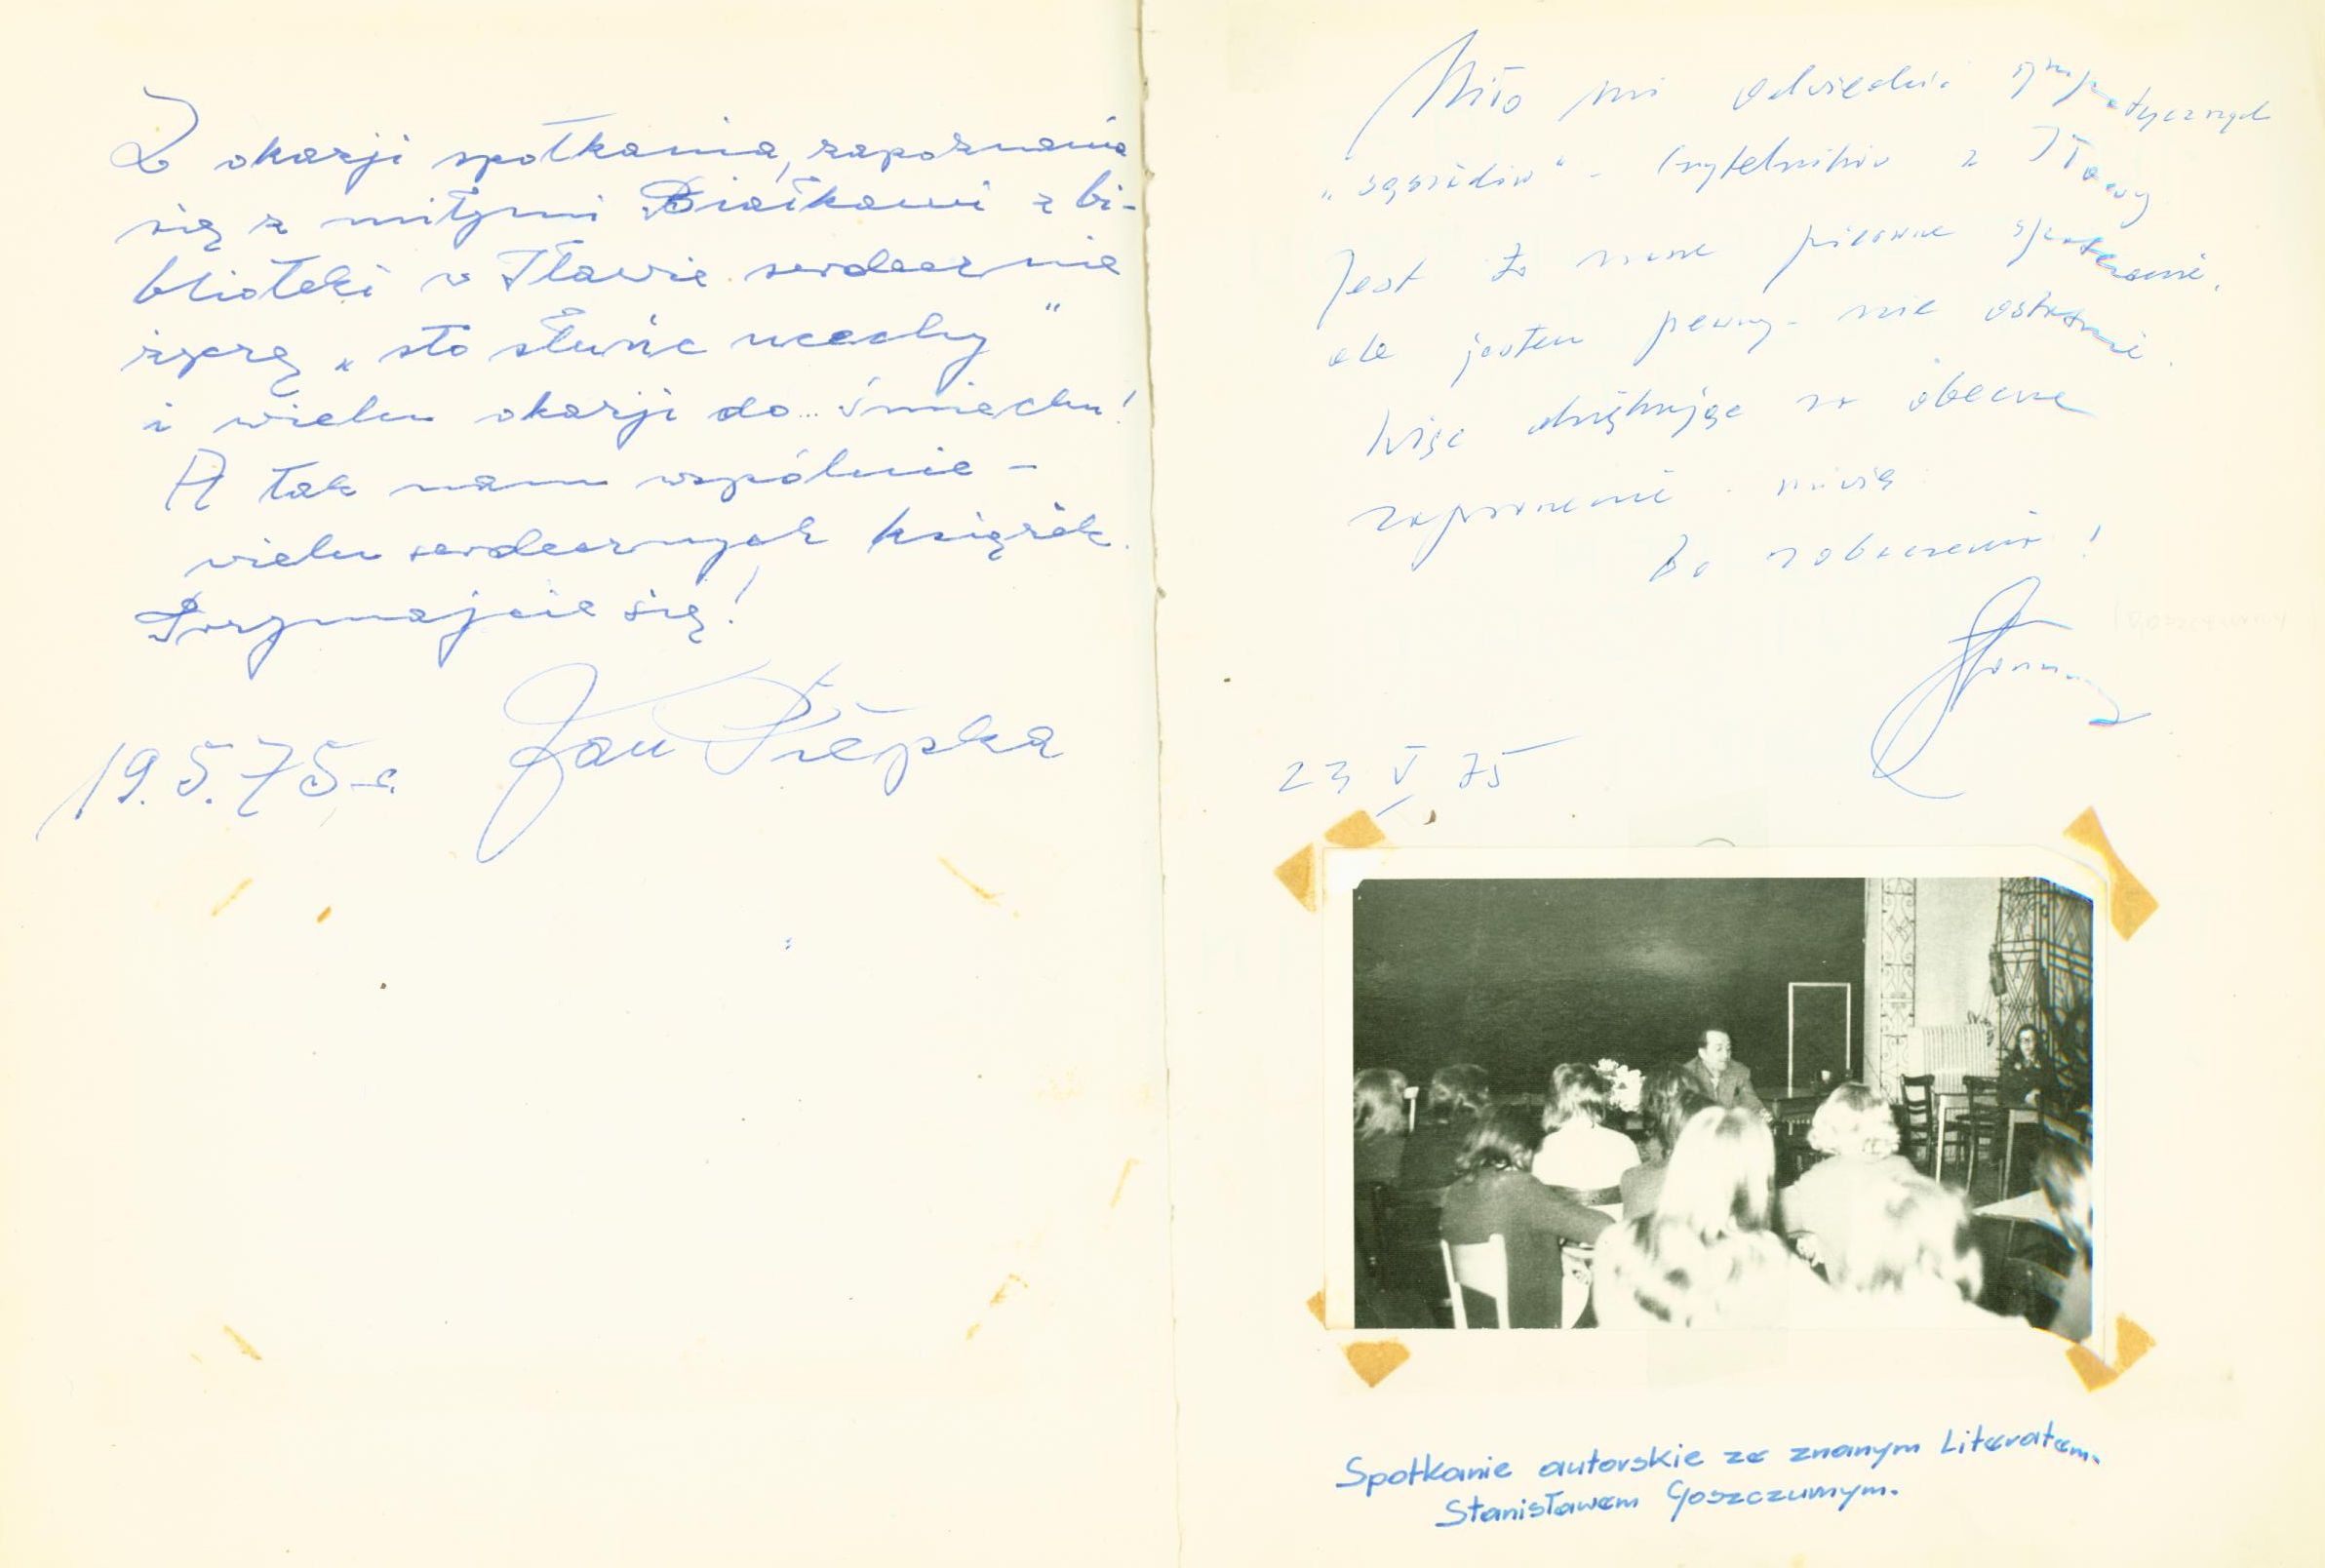 Z okazji spotkania, zapoznania
się z miłymi Białkami z bi-
blioteki w Iławie serdecznie
życzę „sto słońc uciechy”
i wielu okazji do... śmiechu!
A tak nam wspólnie –
wielu serdecznych książek.
Trzymajcie się!
Jan
19.5.75 r.
Miło mi odwiedzić sympatycznych
„sąsiadów” - Czytelników z Iławy
Jest to nasze pierwsze spotkanie,
ale jestem pewny - nie ostatnie.
Więc dziękując za obecne
zaproszenie mówię
Do zobaczenia!
23 V 75
Goszczurny
Spotkanie autorskie ze znanym Literatem.
Stanisławem Goszczurnym.